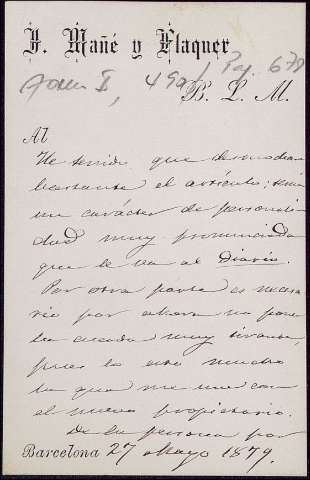 J. Mañé y Flaquer
Tom II, 49a, Pag. 679
B. L. M.
Al
He tenido que desmochar
bastante el artículo; tenía
un carácter de personali-
dad muy pronunciada
que le va al Diario.
Por otra parte es necesa-
rio por ahora no poner
la cuerda muy tirante,
pues la que
me une con
el nuevo propietario.
De la persona por
Barcelona 27 Mayo 1879.